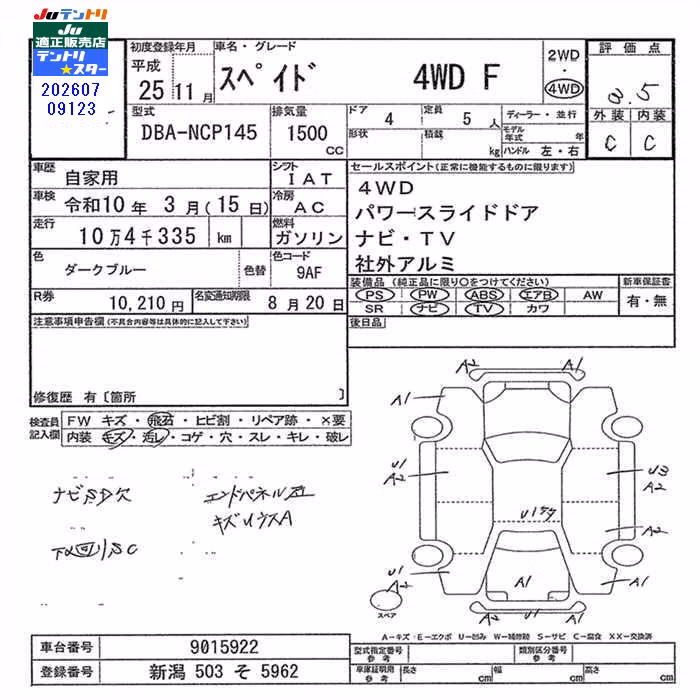 JUテントリ
JU
適正販売店
テントリ
★スター
202607
09123
初度登録年月
平成
25 11 月
車名・グレード
スペイド 4WD F
2WD
・
4WD
評価点
3.5
外装 内装
C C
型式
DBA-NCP145
排気量
1500
CC
ドア 4
定員 5 人
形状
積載 kg
ディーラー・並行
モデル年式 年
ハンドル 左・右
車歴 自家用
シフト IAT
車検 令和10 年 3 月(15 日)
冷房 AC
走行 10万4千335 km
燃料 ガソリン
セールスポイント(正常に機能するものに限ります)
4WD
パワースライドドア
ナビ・TV
社外アルミ
色 ダークブルー 色替
色コード 9AF
R券 10,210 円
名変通知期限 8 月 20 日
装備品(純正品に限り○をつけてください)
PS PW ABS エアB AW
SR ナビ TV カワ
新車保証書
有・無
後日品
注意事項申告欄(不具合内容等は具体的に記入して下さい)
修復歴 有〔箇所 〕
検査員
記入欄
FW キズ・飛石・ヒビ割・リペア跡・×要
内装 キズ・汚レ・コゲ・穴・スレ・キレ・破レ
ナビSD欠
エンドパネル
キズUウスA
下廻リSC
A2 A1
A1
U1
A2
U3
A2
A2
Uｹｹ
U1
A2
A1
A1
スペア
A−キズ・E−エクボ U−凹み W−補修跡 S−サビ C−腐食 XX−交換済
車台番号 9015922
登録番号 新潟 503 そ 5962
型式指定番号
参考
類別区分番号
参考
車庫証明用
参考
長さ cm
幅 cm
高さ cm